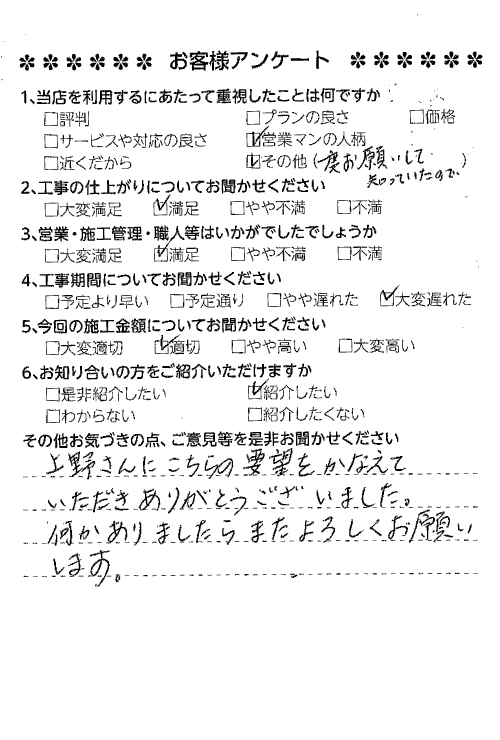 ✽✽✽✽✽✽ お客様アンケート ✽✽✽✽✽✽
1、当店を利用するにあたって重視したことは何ですか
□評判 □プランの良さ □価格
□サービスや対応の良さ ☑営業マンの人柄
□近くだから ☑その他(一度お願いして知っていたので)
2、工事の仕上がりについてお聞かせください
□大変満足 ☑満足 □やや不満 □不満
3、営業・施工管理・職人等はいかがでしたでしょうか
□大変満足 ☑満足 □やや不満 □不満
4、工事期間についてお聞かせください
□予定より早い □予定通り □やや遅れた ☑大変遅れた
5、今回の施工金額についてお聞かせください
□大変適切 ☑適切 □やや高い □大変高い
6、お知り合いの方をご紹介いただけますか
□是非紹介したい ☑紹介したい
□わからない □紹介したくない
その他お気づきの点、ご意見等を是非お聞かせください
上野さんにこちらの要望をかなえて
いただきありがとうございました。
何かありましたらまたよろしくお願い
します。